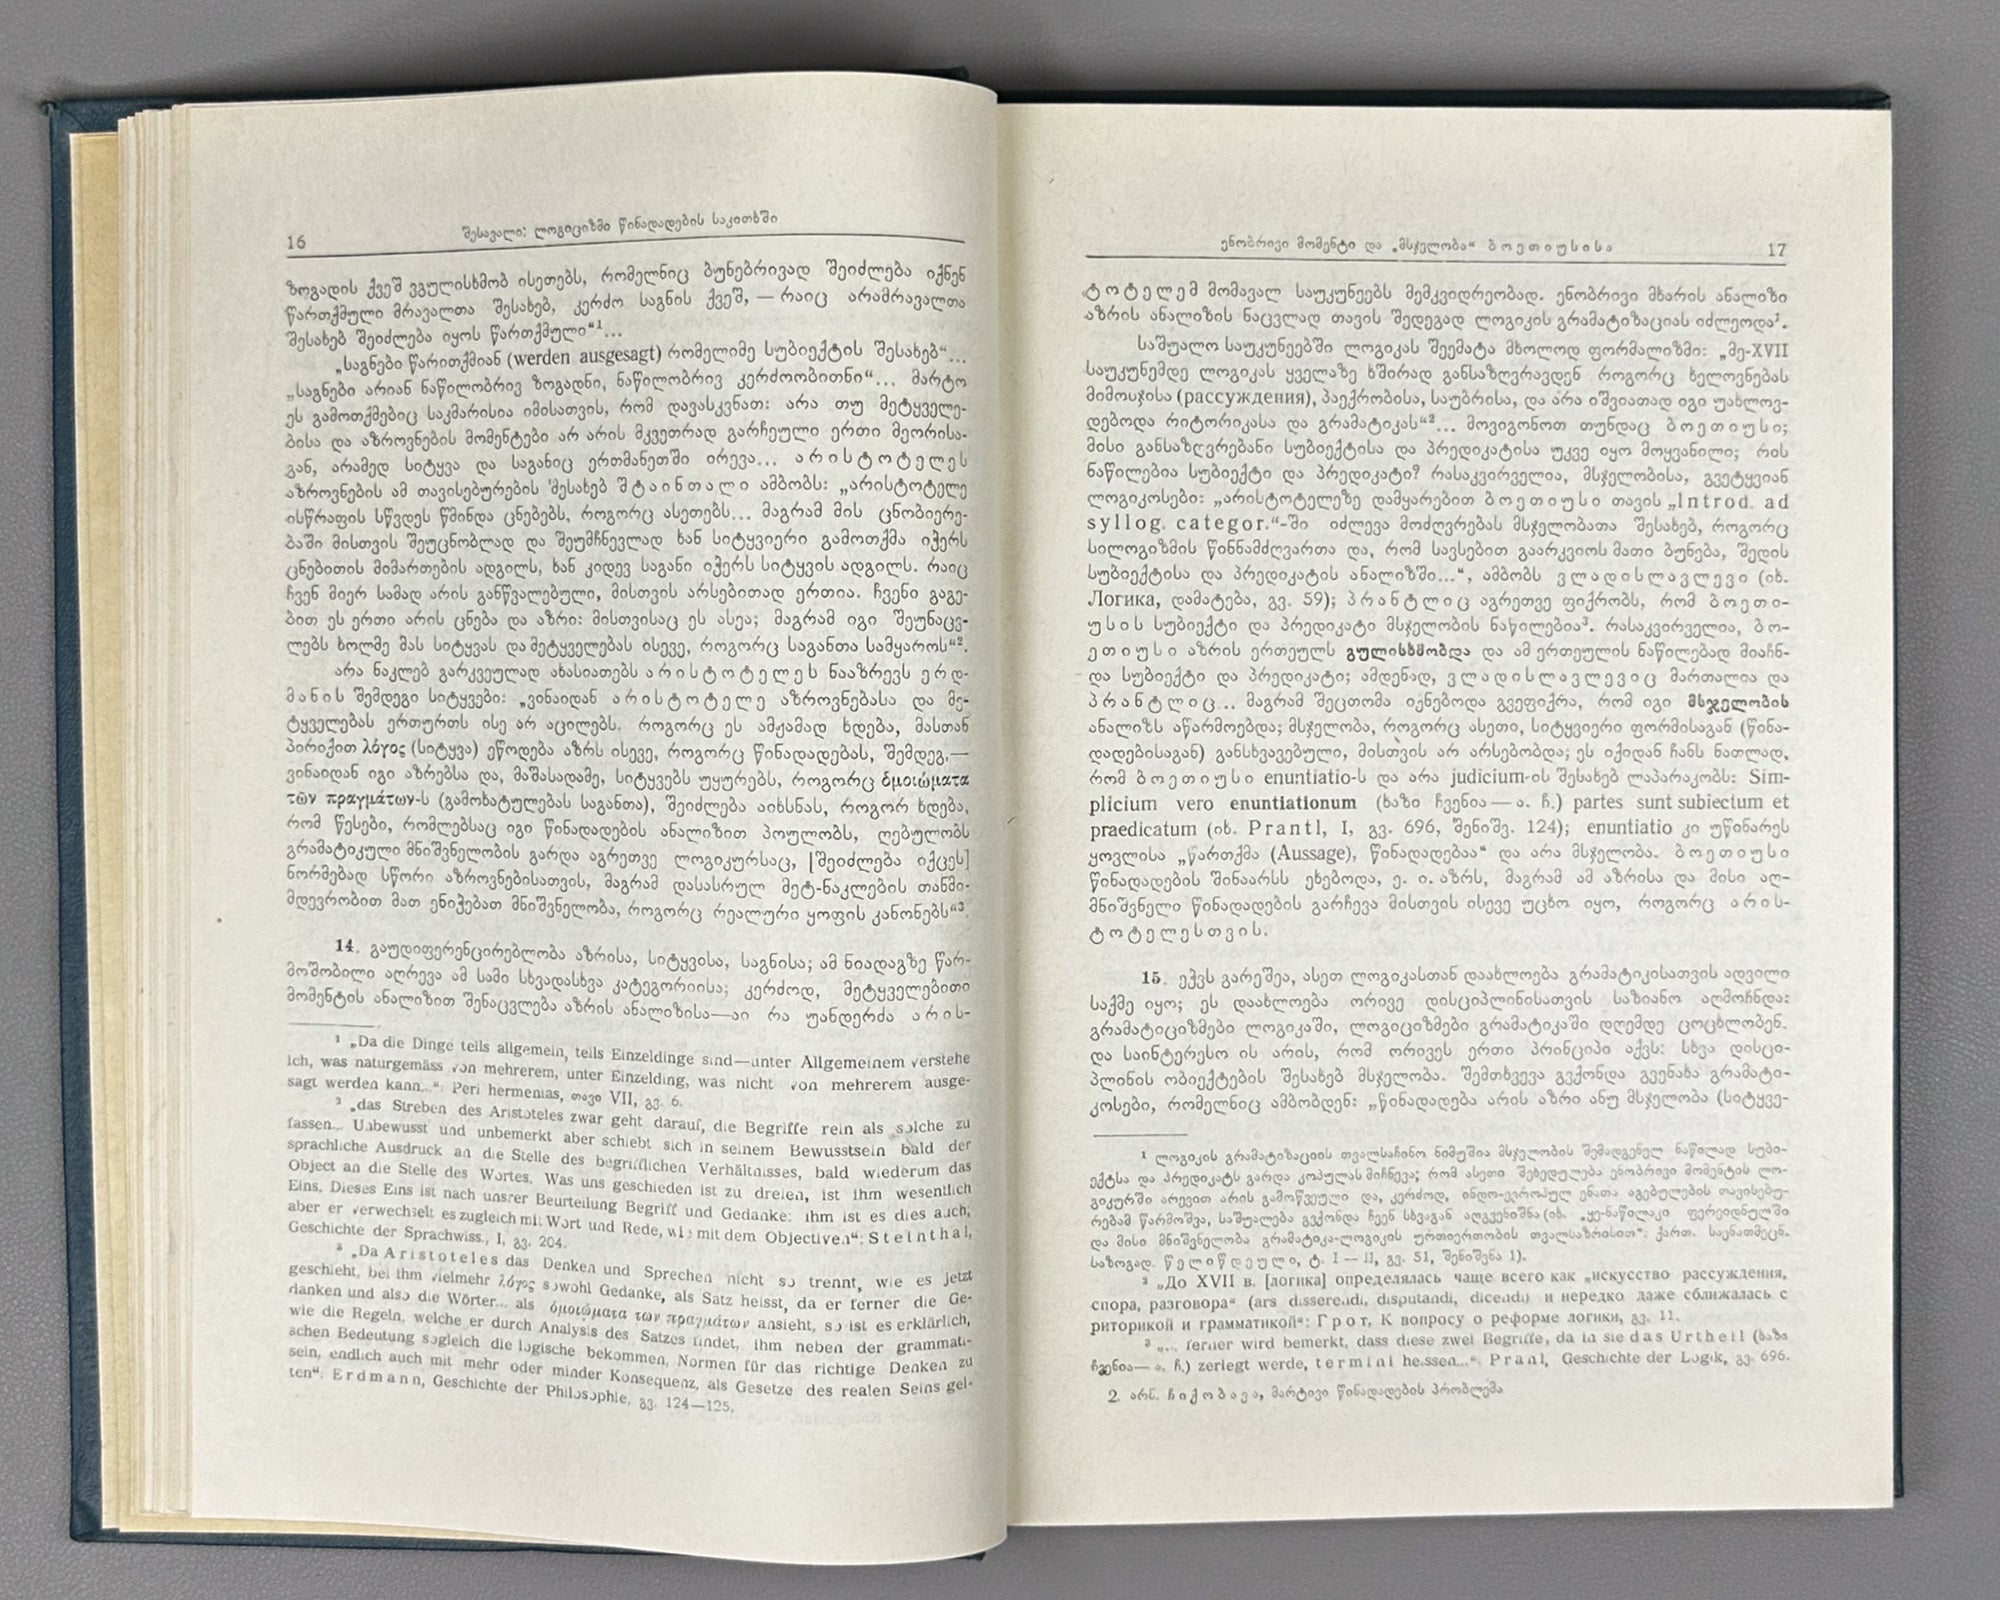 16
შესავალი: ლოგიციზმი წინადადების საკითხში
ზოგადის ქვეშ ვგულისხმობ ისეთებს, რომელნიც ბუნებრივად შეიძლება იქნენ
წართქმული მრავალთა შესახებ, კერძო საგნის ქვეშ, — რაიც არამრავალთა
შესახებ შეიძლება იყოს წართქმული“¹...
„საგნები წარითქმიან (werden ausgesagt) რომელიმე სუბიექტის შესახებ“...
„საგნები არიან ნაწილობრივ ზოგადნი, ნაწილობრივ კერძოობითნი“... მარტო
ეს გამოთქმებიც საკმარისია იმისათვის, რომ დავასკვნათ: არა თუ მეტყველე-
ბისა და აზროვნების მომენტები არ არის მკვეთრად გარჩეული ერთი მეორისა-
გან, არამედ სიტყვა და საგანიც ერთმანეთში ირევა... არისტოტელეს
აზროვნების ამ თავისებურების შესახებ შტაინთალი ამბობს: „არისტოტელე
ისწრაფის სწვდეს წმინდა ცნებებს, როგორც ასეთებს... მაგრამ მის ცნობიერე-
ბაში მისთვის შეუცნობლად და შეუმჩნევლად ხან სიტყვიერი გამოთქმა იჭერს
ცნებითის მიმართების ადგილს, ხან კიდევ საგანი იჭერს სიტყვის ადგილს. რაიც
ჩვენ მიერ სამად არის განწვალებული, მისთვის არსებითად ერთია. ჩვენი გაგე-
ბით ეს ერთი არის ცნება და აზრი: მისთვისაც ეს ასეა; მაგრამ იგი შეუნაცვ-
ლებს ხოლმე მას სიტყვას და მეტყველებას ისევე, როგორც საგანთა სამყაროს“².
არა ნაკლებ გარკვეულად ახასიათებს არისტოტელეს ნააზრევს ერდ-
მანის შემდეგი სიტყვები: „ვინაიდან არისტოტელე აზროვნებასა და მე-
ტყველებას ერთურთს ისე არ აცილებს. როგორც ეს ამჟამად ხდება, მასთან
პირიქით λόγος (სიტყვა) ეწოდება აზრს ისევე, როგორც წინადადებას, შემდეგ,—
ვინაიდან იგი აზრებსა და, მაშასადამე, სიტყვებს უყურებს, როგორც ὁμοιώματα
τῶν πραγμάτων-ს (გამოხატულებას საგანთა), შეიძლება აიხსნას, როგორ ხდება,
რომ წესები, რომლებსაც იგი წინადადების ანალიზით პოულობს, ღებულობს
გრამატიკული მნიშვნელობის გარდა აგრეთვე ლოგიკურსაც, [შეიძლება იქცეს]
ნორმებად სწორი აზროვნებისათვის, მაგრამ დასასრულ მეტ-ნაკლების თანმი-
მდევრობით მათ ენიჭებათ მნიშვნელობა, როგორც რეალური ყოფის კანონებს“³.
14. გაუდიფერენცირებლობა აზრისა, სიტყვისა, საგნისა; ამ ნიადაგზე წარ-
მოშობილი აღრევა ამ სამი სხვადასხვა კატეგორიისა; კერძოდ, მეტყველებითი
მომენტის ანალიზით შენაცვლება აზრის ანალიზისა—აი რა უანდერძა არის-
¹ „Da die Dinge teils allgemein, teils Einzeldinge sind—unter Allgemeinem verstehe
ich, was naturgemäss von mehrerem, unter Einzelding, was nicht von mehrerem ausge-
sagt werden kann..“: Peri hermenias, თავი VII, გვ. 6.
² „das Streben des Aristoteles zwar geht darauf, die Begriffe rein als solche zu
fassen... Unbewusst und unbemerkt aber schiebt sich in seinem Bewusstsein bald der
sprachliche Ausdruck an die Stelle des begrifflichen Verhältnisses, bald wiederum das
Object an die Stelle des Wortes. Was uns geschieden ist zu dreien, ist ihm wesentlich
Eins. Dieses Eins ist nach unsrer Beurteilung Begriff und Gedanke: ihm ist es dies auch,
aber er verwechselt es zugleich mit Wort und Rede, wie mit dem Objectiven“: Steinthal,
Geschichte der Sprachwiss., I, გვ. 204.
³ „Da Aristoteles das Denken und Sprechen nicht so trennt, wie es jetzt
geschieht, bei ihm vielmehr λόγος sowohl Gedanke, als Satz heisst, da er ferner die Ge-
danken und also die Wörter... als ὁμοιώματα των πραγμάτων ansieht, so ist es erklärlich,
wie die Regeln, welche er durch Analysis des Satzes findet, ihm neben der grammati-
schen Bedeutung sogleich die logische bekommen, Normen für das richtige Denken zu
sein, endlich auch mit mehr oder minder Konsequenz, als Gesetze des realen Seins gel-
ten“: Erdmann, Geschichte der Philosophie, გვ. 124—125.
ენობრივი მომენტი და „მსჯელობა“ ბოეთიუსისა
17
ტოტელემ მომავალ საუკუნეებს მემკვიდრეობად. ენობრივი მხარის ანალიზი
აზრის ანალიზის ნაცვლად თავის შედეგად ლოგიკის გრამატიზაციას იძლეოდა¹.
საშუალო საუკუნეებში ლოგიკას შეემატა მხოლოდ ფორმალიზმი: „მე-XVII
საუკუნემდე ლოგიკას ყველაზე ხშირად განსაზღვრავდენ როგორც ხელოვნებას
მიმოსჯისა (рассуждения), პაექრობისა, საუბრისა, და არა იშვიათად იგი უახლოვ-
დებოდა რიტორიკასა და გრამატიკას“²... მოვიგონოთ თუნდაც ბოეთიუსი;
მისი განსაზღვრებანი სუბიექტისა და პრედიკატისა უკვე იყო მოყვანილი; რის
ნაწილებია სუბიექტი და პრედიკატი? რასაკვირველია, მსჯელობისა, გვეტყვიან
ლოგიკოსები: „არისტოტელეზე დამყარებით ბოეთიუსი თავის „Introd. ad
syllog. categor.“-ში იძლევა მოძღვრებას მსჯელობათა შესახებ, როგორც
სილოგიზმის წინნამძღვართა და, რომ სავსებით გაარკვიოს მათი ბუნება, შედის
სუბიექტისა და პრედიკატის ანალიზში...“, ამბობს ვლადისლავლევი (იხ.
Логика, დამატება, გვ. 59); პრანტლიც აგრეთვე ფიქრობს, რომ ბოეთი-
უსის სუბიექტი და პრედიკატი მსჯელობის ნაწილებია³. რასაკვირველია, ბო-
ეთიუსი აზრის ერთეულს გულისხმობდა და ამ ერთეულის ნაწილებად მიაჩნ-
და სუბიექტი და პრედიკატი; ამდენად, ვლადისლავლევიც მართალია და
პრანტლიც... მაგრამ შეცთომა იქნებოდა გვეფიქრა, რომ იგი მსჯელობის
ანალიზს აწარმოებდა; მსჯელობა, როგორც ასეთი, სიტყვიერი ფორმისაგან (წინა-
დადებისაგან) განსხვავებული, მისთვის არ არსებობდა; ეს იქიდან ჩანს ნათლად,
რომ ბოეთიუსი enuntiatio-ს და არა judicium-ის შესახებ ლაპარაკობს: Sim-
plicium vero enuntiationum (ხაზი ჩვენია — ა. ჩ.) partes sunt subiectum et
praedicatum (იხ. Prantl, I, გვ. 696, შენიშვ. 124); enuntiatio კი უწინარეს
ყოვლისა „წართქმა (Aussage), წინადადებაა“ და არა მსჯელობა. ბოეთიუსი
წინადადების შინაარსს ეხებოდა, ე. ი. აზრს, მაგრამ ამ აზრისა და მისი აღ-
მნიშვნელი წინადადების გარჩევა მისთვის ისევე უცხო იყო, როგორც არის-
ტოტელესთვის.
15. ეჭვს გარეშეა, ასეთ ლოგიკასთან დაახლოება გრამატიკისათვის ადვილი
საქმე იყო; ეს დაახლოება ორივე დისციპლინისათვის საზიანო აღმოჩნდა:
გრამატიციზმები ლოგიკაში, ლოგიციზმები გრამატიკაში დღემდე ცოცხლობენ.
და საინტერესო ის არის, რომ ორივეს ერთი პრინციპი აქვს: სხვა დისცი-
პლინის ობიექტების შესახებ მსჯელობა. შემთხვევა გვქონდა გვენახა გრამატი-
კოსები, რომელნიც ამბობდენ: „წინადადება არის აზრი ანუ მსჯელობა (სიტყვე-
¹ ლოგიკის გრამატიზაციის თვალსაჩინო ნიმუშია მსჯელობის შემადგენელ ნაწილად სუბი-
ექტსა და პრედიკატს გარდა კოპულას მიჩნევა; რომ ასეთი შეხედულება ენობრივი მომენტის ლო-
გიკურში არევით არის გამოწვეული და, კერძოდ, ინდო-ევროპულ ენათა აგებულების თავისებუ-
რებამ წარმოშვა, საშუალება გვქონდა ჩვენ სხვაგან აღგვენიშნა (იხ. „ყე-ნაწილაკი ფერეიდნულში
და მისი მნიშვნელობა გრამატიკა-ლოგიკის ურთიერთობის თვალსაზრისით“: ქართ. საენათმეცნ.
საზოგად. წელიწდეული, ტ. I — II, გვ. 51, შენიშვნა 1).
² „До XVII в. [логика] определялась чаще всего как „искусство рассуждения,
спора, разговора“ (ars disserendi, disputandi, dicendi) и нередко даже сближалась с
риторикой и грамматикой“: Грот, К вопросу о реформе логики, გვ. 11.
³ „... ferner wird bemerkt, dass diese zwei Begriffe, da in sie das Urtheil (ხაზი
ჩვენია— ა. ჩ.) zerlegt werde, termini heissen...“: Pranl, Geschichte der Logik, გვ. 696.
2. არნ. ჩიქობავა, მარტივი წინადადების პრობლემა